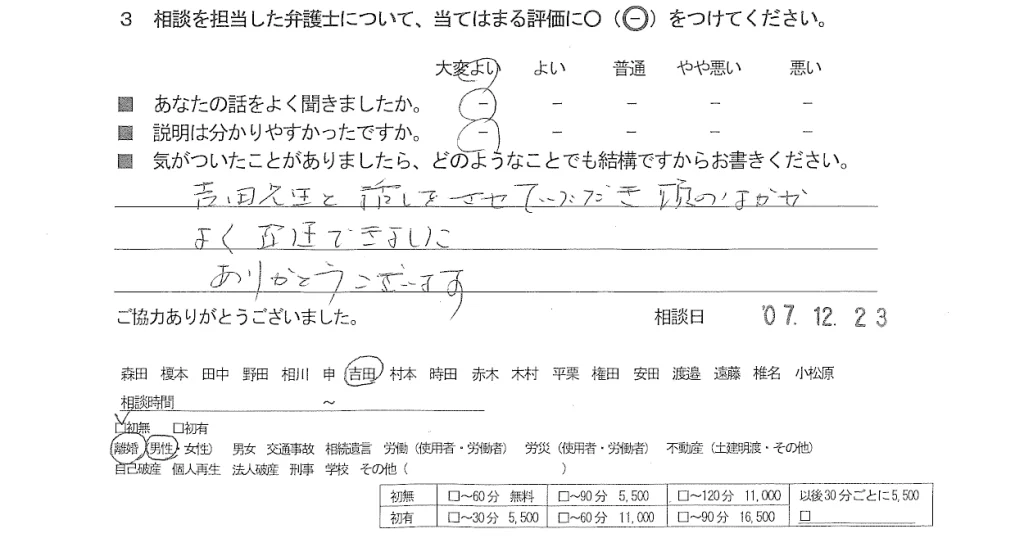 3 相談を担当した弁護士について、当てはまる評価に○（㊀）をつけてください。
大変よい よい 普通 やや悪い 悪い
■ あなたの話をよく聞きましたか。 － － － － －
■ 説明は分かりやすかったですか。 － － － － －
■ 気がついたことがありましたら、どのようなことでも結構ですからお書きください。
吉田先生と話しをさせていただき頭のなかが
よく整理できました
ありがとうございます
ご協力ありがとうございました。 相談日 '07.12.23
森田 榎本 田中 野田 相川 申 吉田 村本 時田 赤木 木村 平栗 権田 安田 渡邉 遠藤 椎名 小松原
相談時間 ～
□初無 □初有
離婚（男性・女性） 男女 交通事故 相続遺言 労働（使用者・労働者） 労災（使用者・労働者） 不動産（土建明渡・その他）
自己破産 個人再生 法人破産 刑事 学校 その他（ ）
初無 □～60分 無料 □～90分 5,500 □～120分 11,000 以後30分ごとに5,500
初有 □～30分 5,500 □～60分 11,000 □～90分 16,500 □